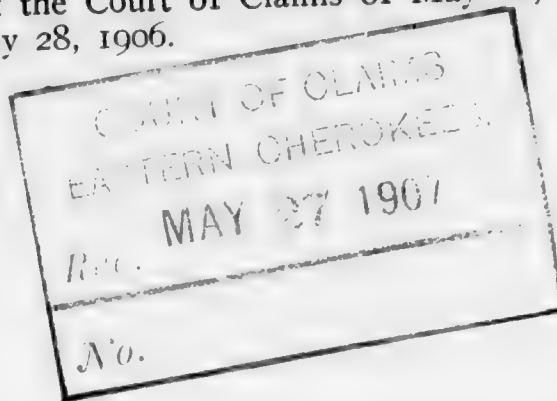 the Court of Claims of May
y 28, 1906.
COURT OF CLAIMS
EASTERN CHEROKEES.
Rec. MAY 27 1907
No.